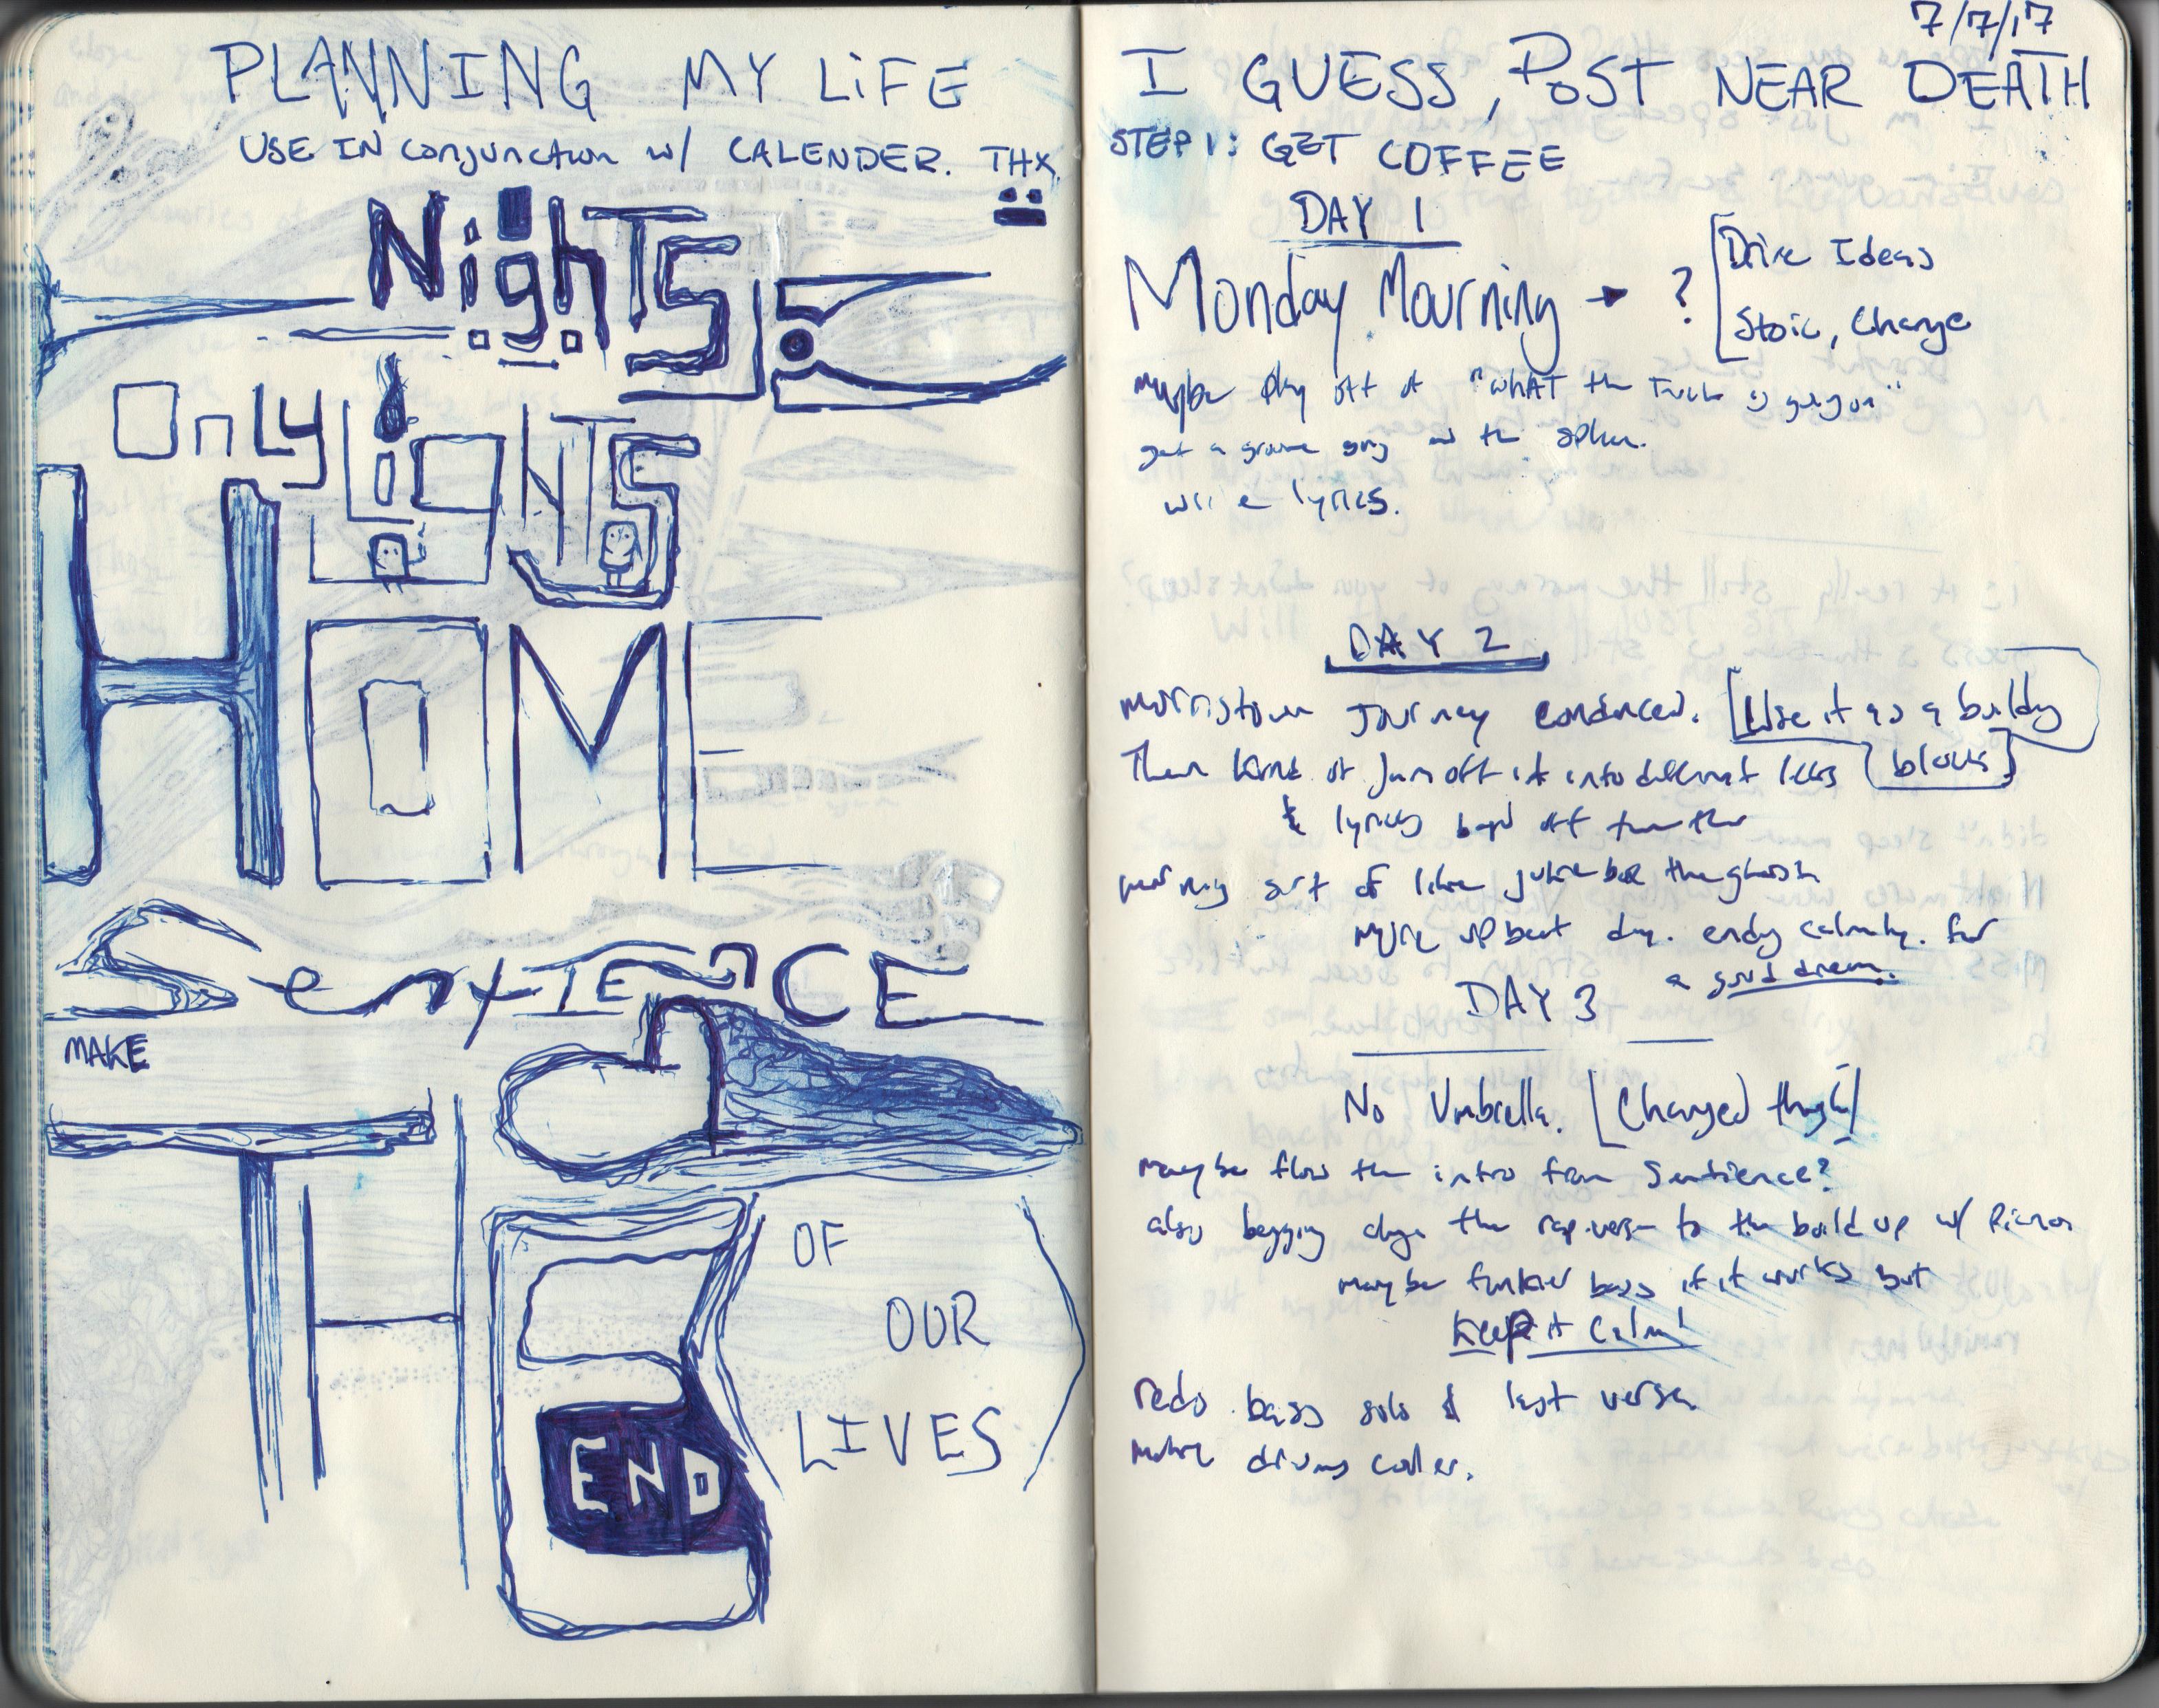 PLANNING MY LiFE
USE IN conjunction w/ CALENDER. THX
NighTS
Only LigHTS
HOME
SenTIENCE
MAKE
THE
END
OF
OUR
LIVES
7/7/17
I GUESS, POST NEAR DEATH
STEP 1: GET COFFEE
DAY 1
Monday Mourning → ? [Drive Ideas
Stoic, Change
maybe play off of "WhAT the Fuck is going on"
get a groove going
write lyrics.
DAY 2
Morristown Journey condenced. [Use it as a building
Then kind of Jam off it into different licks [blocks]
& lyrics off
sort of like jukebox the ghost
More upbeat day. ending calmly. for
a good dream.
DAY 3
No Umbrella. [Changed though]
Maybe flow the intro from Sentience?
also the rap verse to the build up w/ Piano
maybe funkier bass if it works but
KeeP it Calm!
redo bass solo & last verse